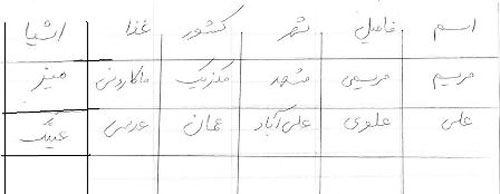 اسم فامیل شهر کشور غذا اشیا
مریم مریمی مشهد مکزیک ماکارونی میز
علی علوی علی‌آباد عمان عدسی عینک